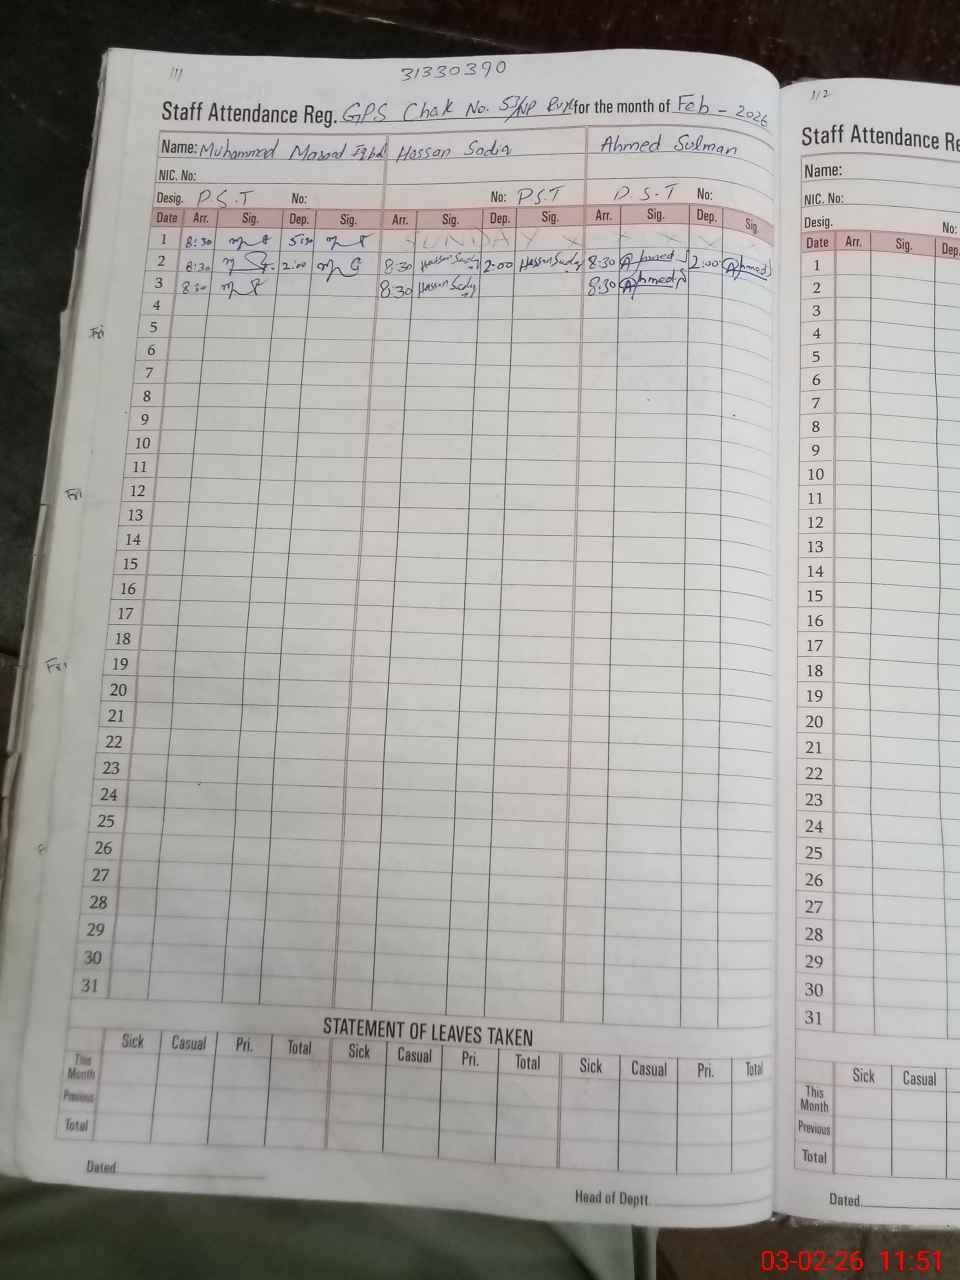 111
31330390
112
Staff Attendance Reg. G.P.S Chak No. 53/NP for the month of Feb - 2026
Name: Muhammed Masood Iqbal Hassan Sadiq Ahmed Sulman
NIC. No:
Desig. P.S.T No: No: PST P.S.T No:
Date Arr. Sig. Dep. Sig. Arr. Sig. Dep. Sig. Arr. Sig. Dep. Sig.
1 8:30 SUNDAY X X X X X
2 8:30 2:00 8:30 Hassan Sadiq 2:00 Hassan Sadiq 8:30 Ahmed S 2:00 Ahmed S
3 8:30 8:30 Hassan Sadiq 8:30 Ahmed S
4
5
Fri
6
7
8
9
10
11
12
Fri
13
14
15
16
17
18
19
Fri
20
21
22
23
24
25
26
27
28
29
30
31
STATEMENT OF LEAVES TAKEN
Sick Casual Pri. Total Sick Casual Pri. Total Sick Casual Pri. Total
This
Month
Previous
Total
Dated
Head of Deptt.
Staff Attendance Re
Name:
NIC. No:
Desig. No:
Date Arr. Sig. Dep.
1
2
3
4
5
6
7
8
9
10
11
12
13
14
15
16
17
18
19
20
21
22
23
24
25
26
27
28
29
30
31
Sick Casual
This
Month
Previous
Total
Dated
03-02-26 11:51